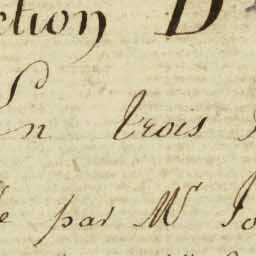 ction D
En trois
é par Mr Jo